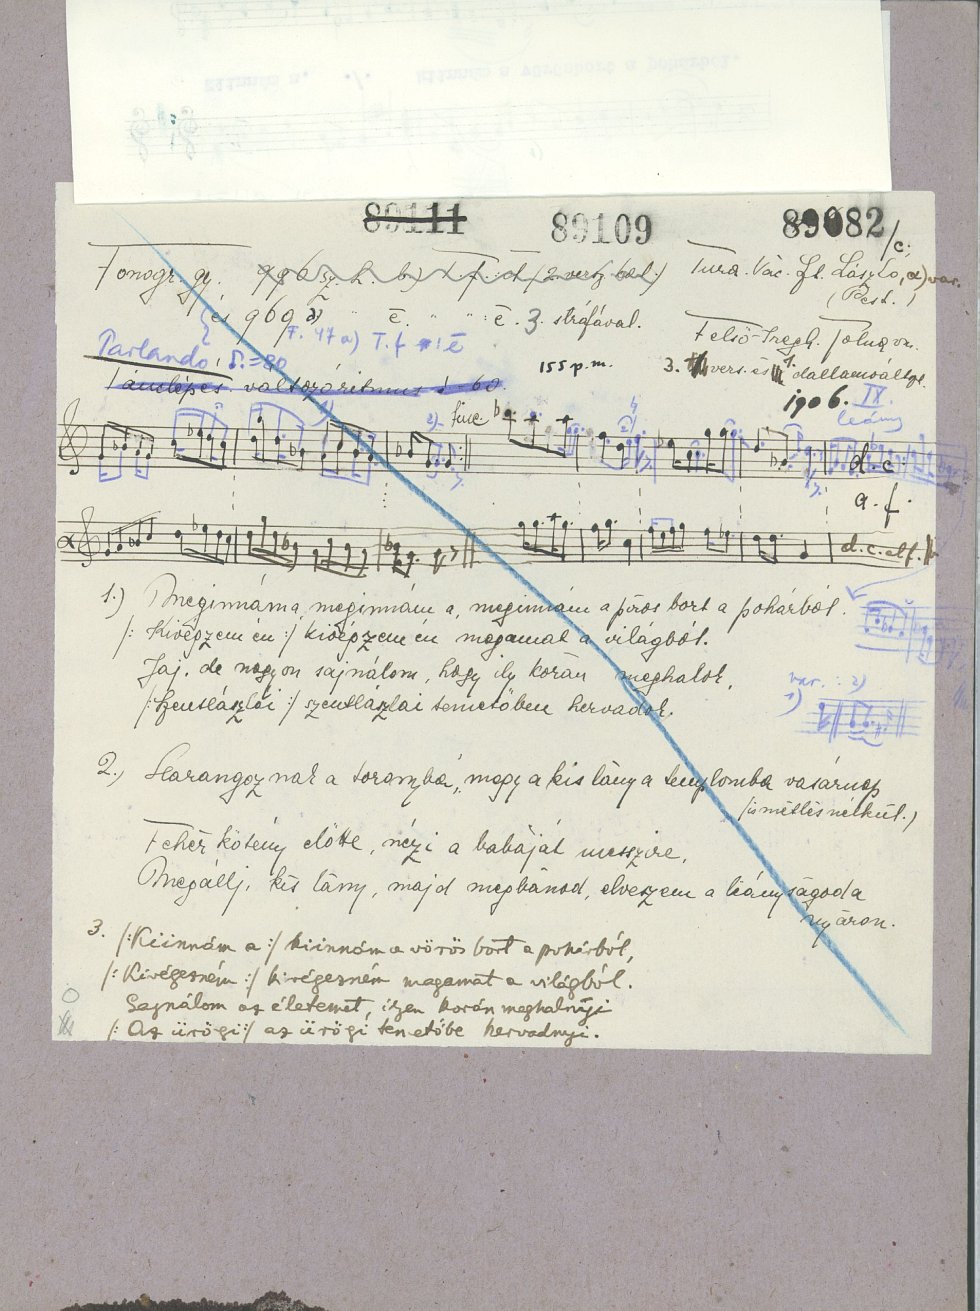 89111 89109 89082/c;
Fonogr. gy. Tura. Vác. Sz. László, α) var.
(Pest.)
és 969 a) " ē. " " ē. 3. strófával.
F. 47 a) T. f
Felső-Iregh. Tolna vm.
Parlando, = 80
155 p.m.
3. vers. és 1. dallamváltoz.
Tánclépés változó ritmus = 60
1906. IX.
leány
fine
d. c.
a. f.
α
d. c. al f.
1.) Meginnám a, meginnám a, meginnám a piros bort a pohárból.
/: Kivégzem én :/ kivégzem én magamat a világból.
Jaj, de nagyon sajnálom, hogy ily korán meghalok,
var. : 2)
1)
/: Szentlászlói :/ szentlászlai temetőben hervadok.
2.) Harangoznak a toronyba, megy a kis lány a templomba vasárnap
(ismétlés nélkül.)
Fehér kötény előtte, nézi a babáját messzire,
Megállj, kis lány, majd megbánod, elveszem a leányságoda
nyáron.
3. /: Kiinnám a :/ kiinnám a vörös bort a pohárból,
/: Kivégezném :/ kivégezném magamat a világból.
Sajnálom az életemet, ilyen korán meghalnyi
/: Az ürögi :/ az ürögi temetőbe hervadnyi.